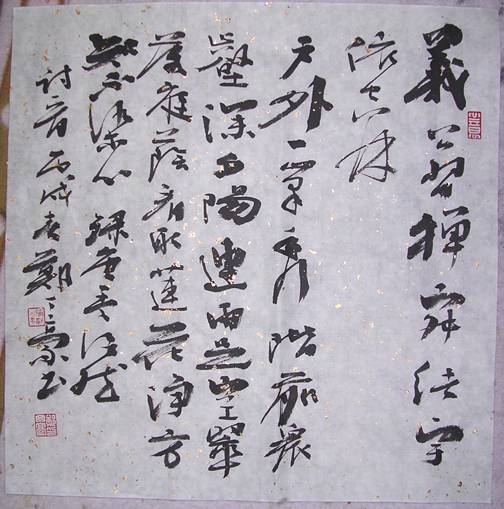 義公習禪寂结宇
依空林
户外一峯秀階前衆
壑深夕陽連雨足空翠
落庭蔭看取蓮花淨方
知不染心録唐孟浩然
丙戌春鄭豪书